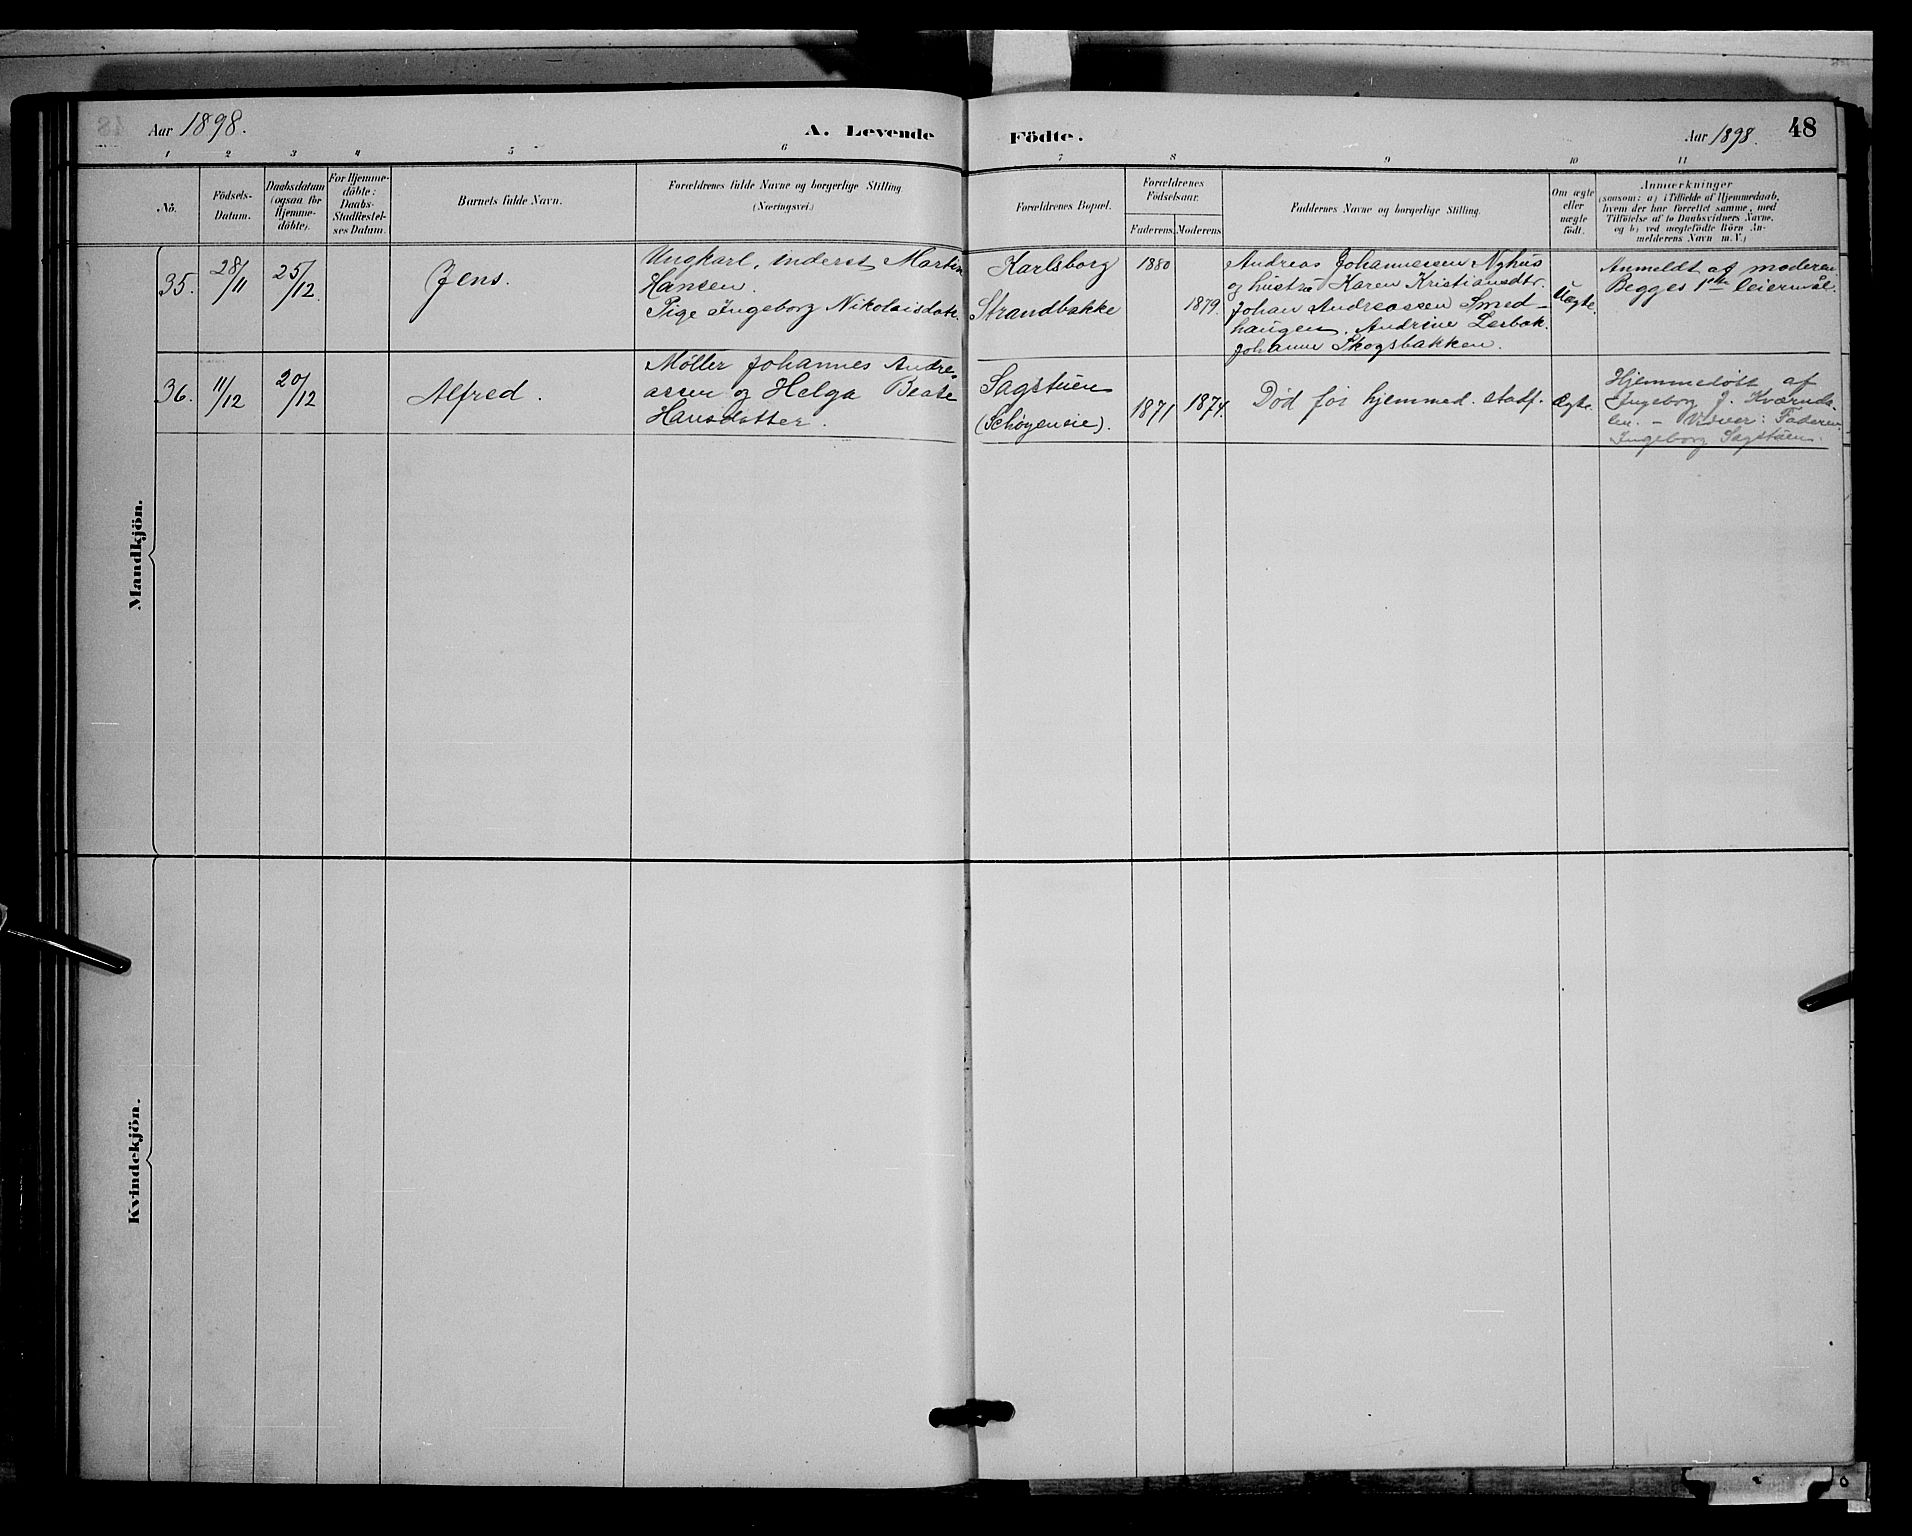 Aar 1898.
A. Levende Födte.
Aar 1898.
48
1 2 3 4 5 6 7 8 9 10 11
No.
Födsels-
Datum.
Daabsdatum
(ogsaa for
Hjemme-
döbte).
For Hjemme-
döbte:
Daabs-
Stadfæstel-
ses Datum.
Barnets fulde Navn.
Forældrenes fulde Navne og borgerlige Stilling
(Næringsvei.)
Forældrenes Bopæl.
Forældrenes
Födselsaar.
Faderens.
Moderens.
Faddernes Navne og borgerlige Stilling.
Om ægte
eller
uægte
födt.
Anmærkninger
(saasom: a) i Tilfælde af Hjemmedaab,
hvem der har forrettet samme, med
Tilföielse af to Daabsvidners Navne,
og b) ved uægtefödte Börn An-
melderens Navn m. V.)
Mandkjön.
35.
28/11
25/12
Jens.
Ungkarl, inderst Martin
Hansen.
Pige Ingeborg Nikolaisdatt.
Karlsborg
Strandbakke
1880
1879.
Andreas Johannessen Nyhus
og hustru Karen Kristiansdtr.
Johan Andreassen Smed-
haugen, Andrine Lesbak.
Johanne Skogsbakken.
Uægte.
Anmeldt af moderen
Begges 1ste leiermål.
36.
11/12
20/12
Alfred.
Møller Johannes Andre-
assen og Helga Beate
Hansdatter.
Sagstuen
(Schøyenseie).
1871
1874.
Død før hjemmed. stadf.
Ægte.
Hjemmedøbt af
Ingeborg J. Kværnds-
lien. – Vidner: Faderen
Ingeborg Sagstuen.
Kvindekjön.